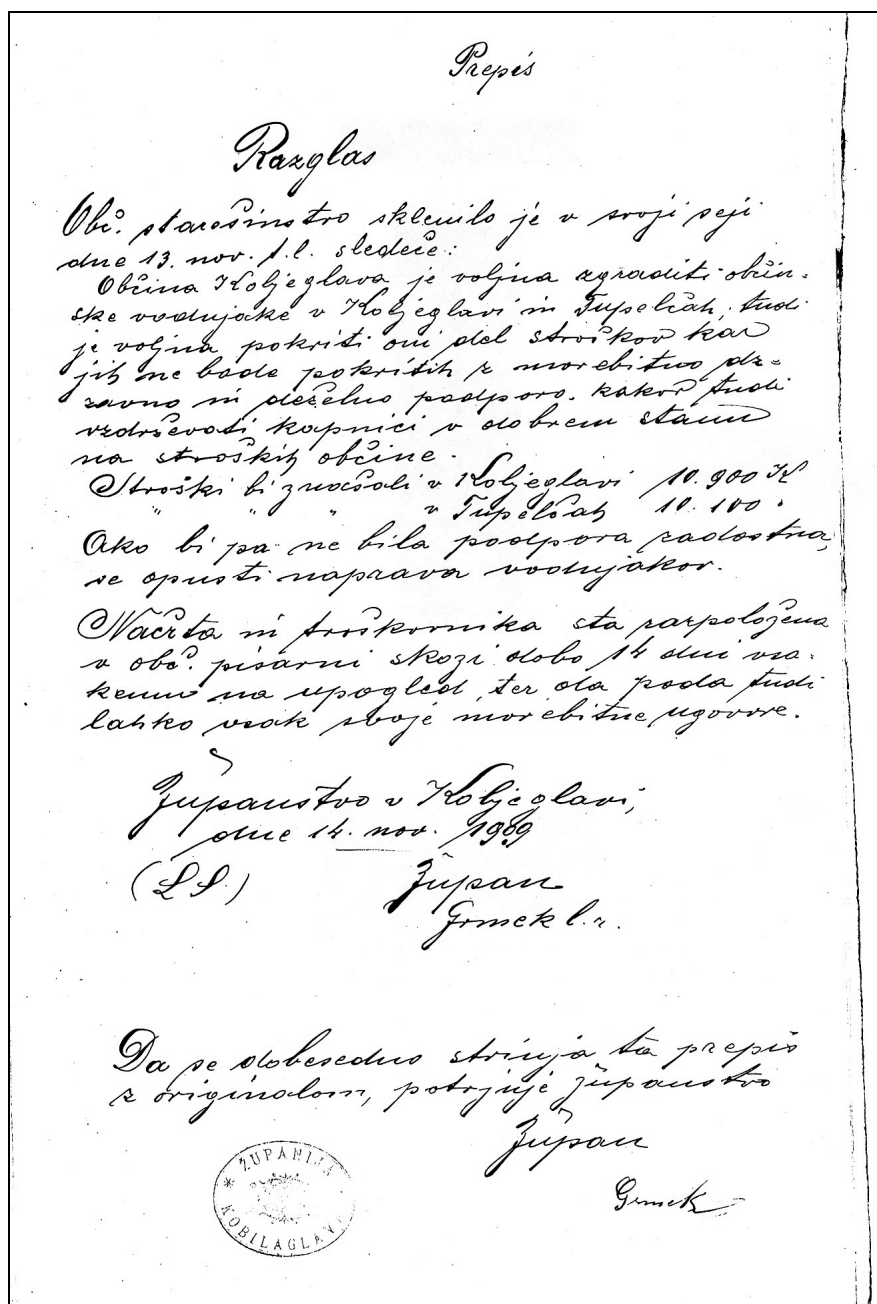 Prepis
Razglas
Obč. starešinstvo sklenilo je v svoji seji
dne 13. nov. t.l. sledeče:
Občina Kobjeglava je voljna zgraditi občin-
ske vodnjake v Kobjeglavi in Tupelčah, tudi
je voljna pokriti oni del stroškov kar
jih ne bode pokritih z morebitno dr-
žavno in deželno podporo. kakor tudi
vzdrževati kapnici v dobrem stanu
na stroških občine.
Stroški bi znašali v Kobjeglavi 10.900 K
" " " v Tupelčah 10.100 "
Ako bi pa ne bila podpora zadostna,
se opusti naprava vodnjakov.
Načrta in troškovnika sta razpoložena
v obč. pisarni skozi dobo 14 dni vsa-
kemu na upogled, ter da poda tudi
lahko vsak svoje morebitne ugovore.
Županstvo v Kobjeglavi,
dne 14. nov. 1909
(L S.) Župan
Grmek l. r.
Da se dobesedno strinja ta prepis
z originalom, potrjuje županstvo
Župan
Grmek
* ŽUPANIJA *
KOBILAGLAVA